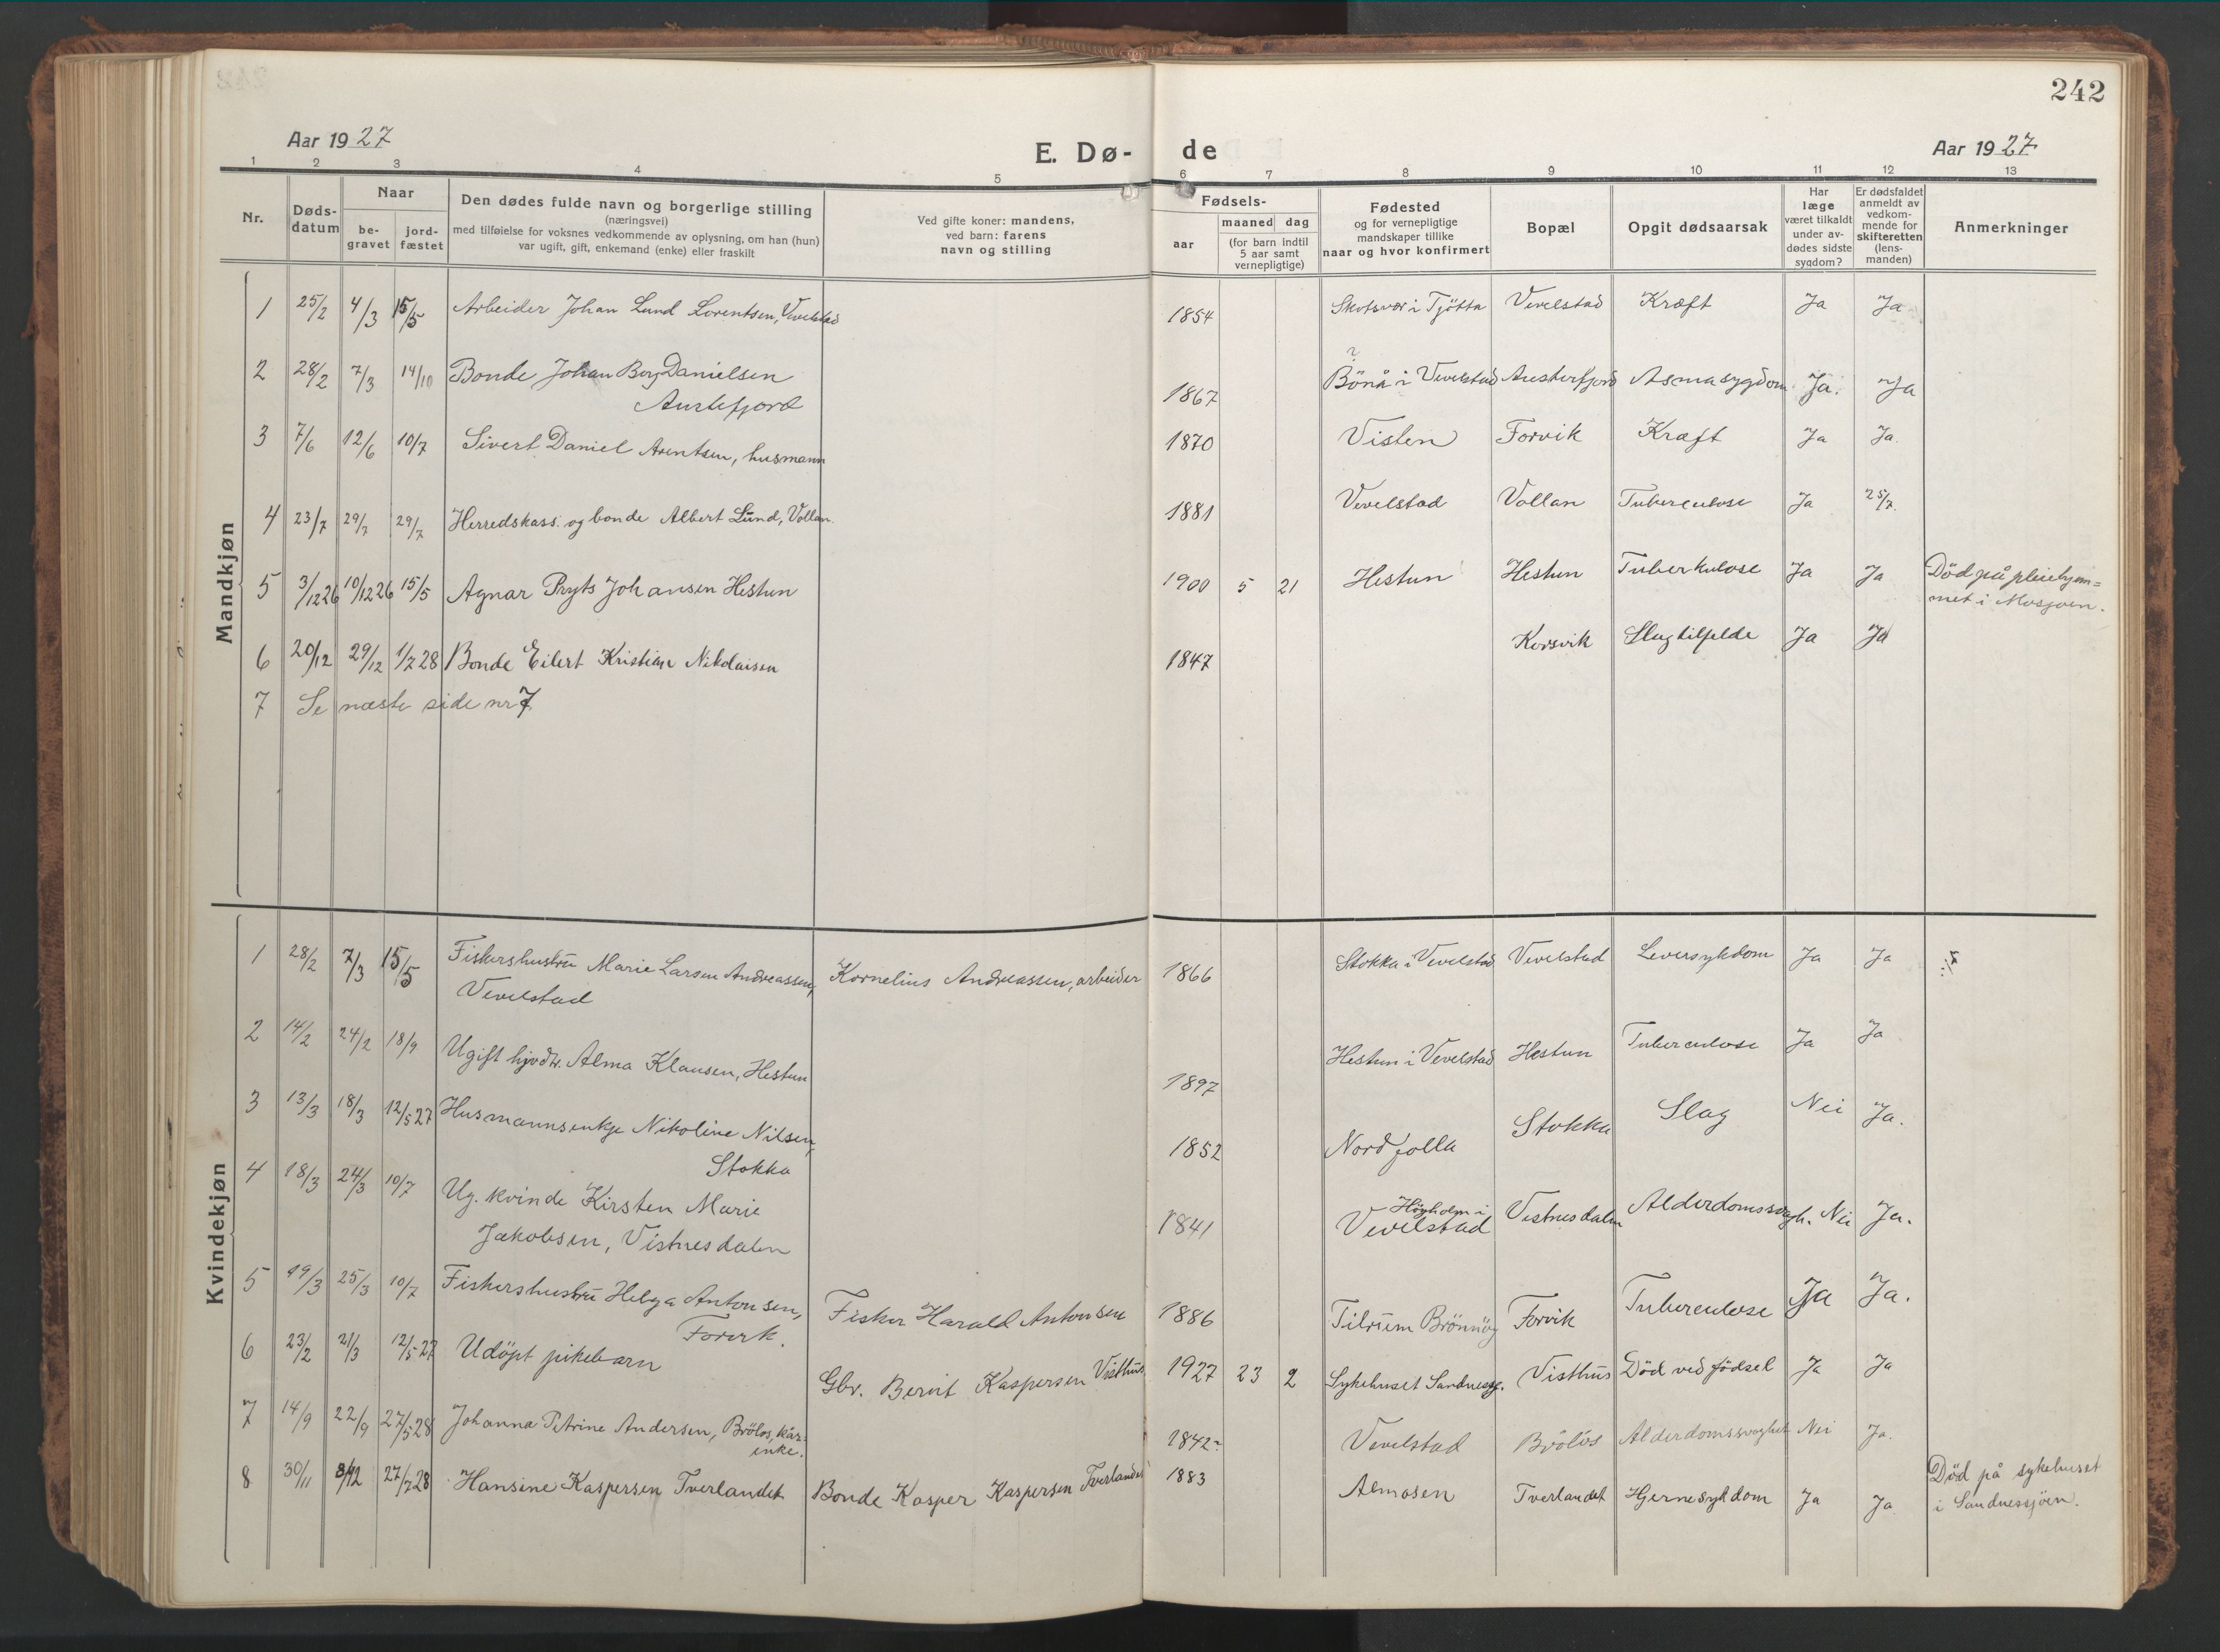 242
Aar 1927
E. Dø-
de
Aar 1927
1 2 3 4 5 6 7 8 9 10 11 12 13
Nr.
Døds-
datum
Naar
be-
gravet
jord-
fæstet
Den dødes fulde navn og borgerlige stilling
(næringsvei)
med tilføielse for voksnes vedkommende av oplysning, om han (hun)
var ugift, gift, enkemand (enke) eller fraskilt
Ved gifte koner: mandens,
ved barn: farens
navn og stilling
Fødsels-
aar
maaned dag
(for barn indtil
5 aar samt
vernepligtige)
Fødested
og for vernepligtige
mandskaper tillike
naar og hvor konfirmert
Bopæl
Opgit dødsaarsak
Har
læge
været tilkaldt
under av-
dødes sidste
sygdom?
Er dødsfaldet
anmeldt av
vedkom-
mende for
skifteretten
(lens-
manden)
Anmerkninger
Mandkjøn
1 25/2 4/3 15/5 Arbeider Johan Lund Lorentsen, Vevelstad 1854 Skotsvær i Tjötta Vevelstad Kræft Ja Ja
2 28/2 7/3 14/10 Bonde Johan Berg Danielsen
Austefjord 1867 ? Bönå i Vevelstad Austerfjord Asmasygdom Ja. Ja
3 7/6 12/6 10/7 Sivert Daniel Arentsen, husmann 1870 Visten Forvik Kræft Ja Ja.
4 23/7 29/7 29/7 Herredskass. og bonde Albert Lund, Vollan. 1881 Vevelstad Vollan Tuberculose Ja 25/7.
5 3/12 26 10/12 26 15/5 Agnar Pryts Johansen Hestun 1900 5 21 Hestun Hestun Tuberkulose Ja Ja Död på pleiehjem=
met i Mosjøen.
6 20/12 29/12 1/7 28 Bonde Eilert Kristian Nikolaisen 1847 Korsvik Slagtilfelde Ja Ja
7 Se næste side nr 7
Kvindekjøn
1 28/2 7/3 15/5 Fiskershustru Marie Larsen Andreassen,
Vevelstad Kornelius Andreassen, arbeider 1866 Stokka i Vevelstad Vevelstad Leversykdom Ja Ja
2 14/2 24/2 18/9 Ugift hjvdtr. Alma Klausen, Hestun 1897 Hestun i Vevelstad Hestun Tuberculose Ja Ja
3 13/3 18/3 12/5 27 Husmannsenkje Nikoline Nilsen,
Stokka 1852 Nordfolla Stokka Slag Nei Ja.
4 18/3 24/3 10/7 Ug. kvinde Kirsten Marie
Jakobsen, Vistnesdalen 1841 Höyholm i
Vevelstad Vistnesdalen Alderdomssvagh. Nei Ja.
5 19/3 25/3 10/7 Fiskershustru Helga Antonsen,
Forvik. Fisker Harald Antonsen 1886 Tilrem Brönnöy Forvik Tuberculose Ja Ja.
6 23/2 21/3 12/5 27 Udöpt pikebarn Gbr. Bernt Kaspersen Visthus 1927 23 2 Sykehuset Sandnessj. Visthus Död ved födsel Ja Ja
7 14/9 22/9 27/5 28 Johanna Petrine Andersen, Brölös, kår-
enke. 1842 Vevelstad Brölös Alderdomssvaghet Nei Ja.
8 30/11 8/12 27/7 28 Hansine Kaspersen Tverlandet Bonde Kasper Kaspersen Tverlandet 1883 Almosen Tverlandet Hjernesykdom Ja Ja Död på sykehuset
i Sandnessjöen.